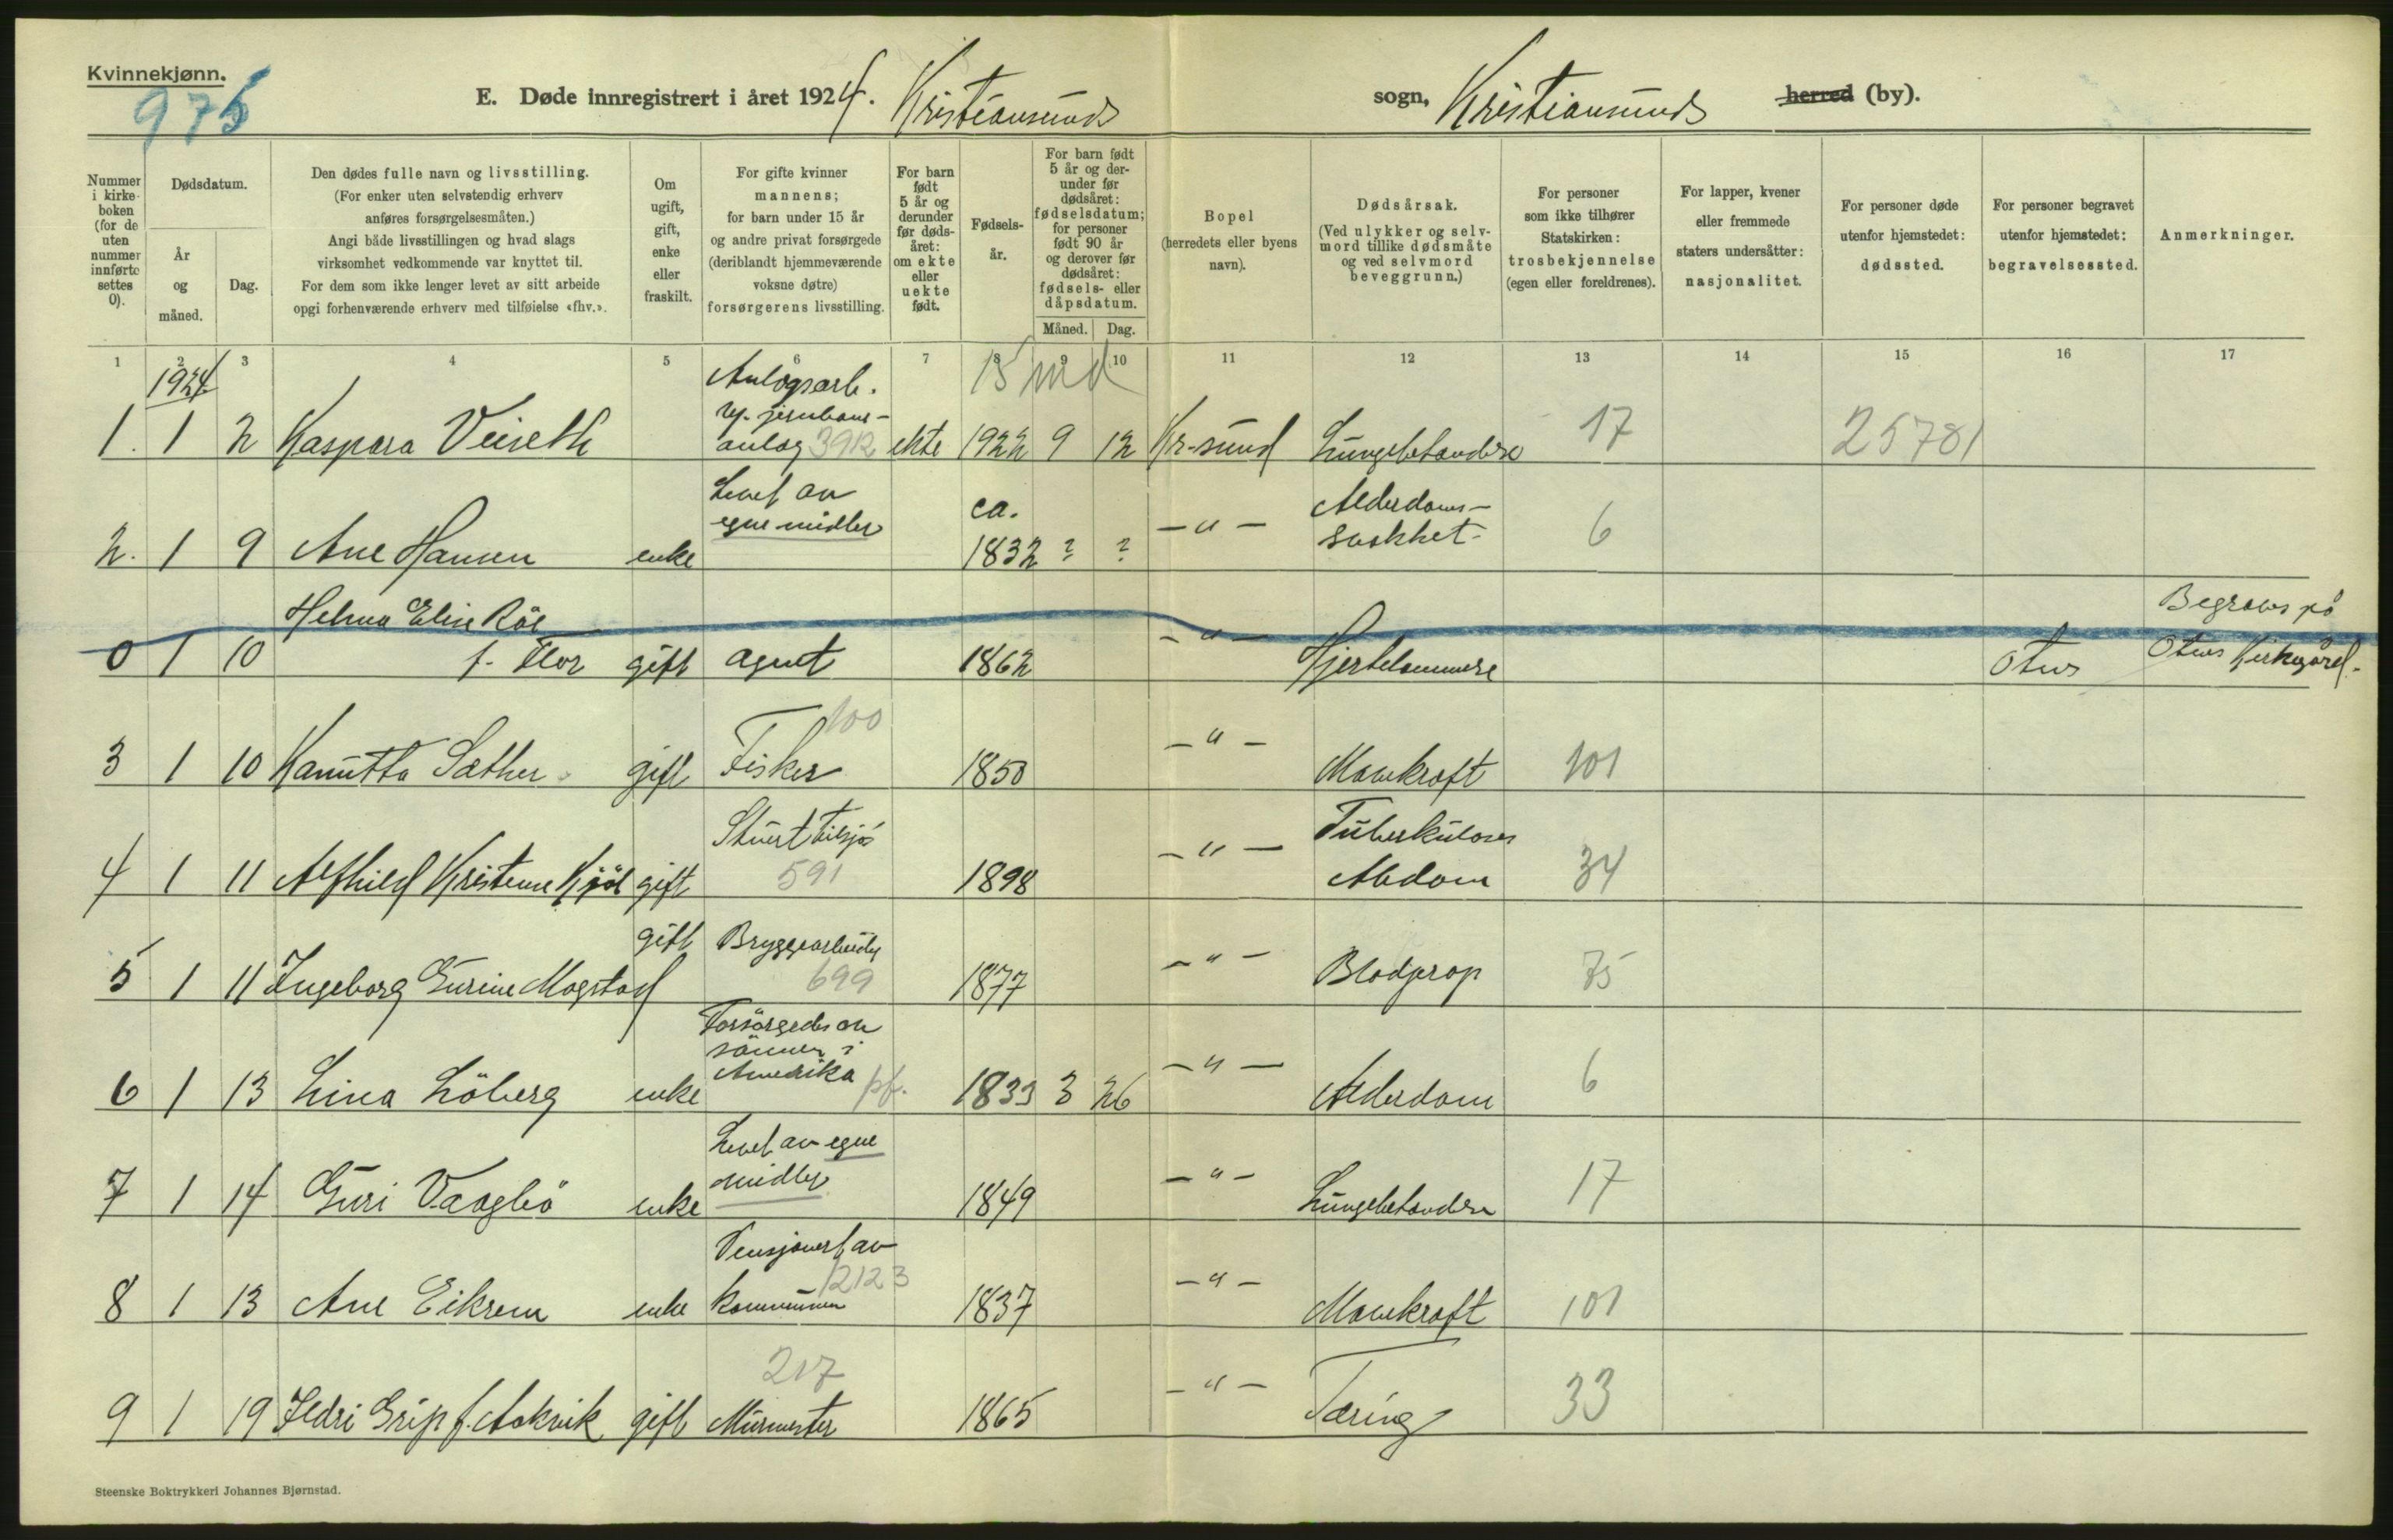 Kvinnekjønn.
975
E. Døde innregistrert i året 1924. Kristiansunds sogn, Kristiansunds herred (by).
Nummer i kirkeboken (for de uten nummer innførte settes 0).
Dødsdatum.
År og måned.
Dag.
Den dødes fulle navn og livsstilling.
(For enker uten selvstendig erhverv anføres forsørgelsesmåten.)
Angi både livsstillingen og hvad slags virksomhet vedkommende var knyttet til.
For dem som ikke lenger levet av sitt arbeide opgi forhenværende erhverv med tilføielse «fhv.».
Om ugift, gift, enke eller fraskilt.
For gifte kvinner mannens; for barn under 15 år og andre privat forsørgede (deriblandt hjemmeværende voksne døtre) forsørgerens livsstilling.
For barn født 5 år og derunder før dødsåret: om ekte eller uekte født.
Fødselsår.
For barn født 5 år og derunder før dødsåret: fødselsdatum; for personer født 90 år og derover før dødsåret: fødsels- eller dåpsdatum.
Måned. Dag.
Bopel (herredets eller byens navn).
Dødsårsak.
(Ved ulykker og selvmord tillike dødsmåte og ved selvmord beveggrunn.)
For personer som ikke tilhører Statskirken: trosbekjennelse (egen eller foreldrenes).
For lapper, kvener eller fremmede staters undersåtter: nasjonalitet.
For personer døde utenfor hjemstedet: dødssted.
For personer begravet utenfor hjemstedet: begravelsessted.
Anmerkninger.
1 2 3 4 5 6 7 8 9 10 11 12 13 14 15 16 17
1924
15 md
Anlogsarb.
1. 1 2 Kaspara Veiseth anlag 3912 ekte 1922 9 12 Kr-sund Lungebetændelse 17 25781
Levet av egne midler
2. 1 9 Ane Hansen enke ca. 1832 ? ? -"- Alderdomssvakhet 6
Helma Elise Röe
0 1 10 f. Flor gift agent 1862 -"- Hjertelammelse Otnes Begraves på Otnes Kirkegård.
100
3 1 10 Kanutta Sæther gift Fisker 1850 -"- Mavekræft 101
4 1 11 Alfhild Kristine Kjöl gift Stuert tilsjös 591 1898 -"- Tuberkuloses Abdom 34
5 1 11 Ingeborg Gurine Magstad gift Bryggearbeider 699 1877 -"- Blodprop 75
Forsörgedes av sönner i Amerika pf.
6 1 13 Lina Löberg enke 1833 3 26 -"- Alderdom 6
Levet av egne midler
7 1 14 Guri Vaagbö enke 1849 -"- Lungebetændelse 17
Pensjonert av
8 1 13 Ane Eikrem enke kommunen 12123 1837 -"- Mavekræft 101
217
9 1 19 Ildri Grip f. Aakvik gift Murmester 1865 -"- Tæring 33
Steenske Boktrykkeri Johannes Bjørnstad.